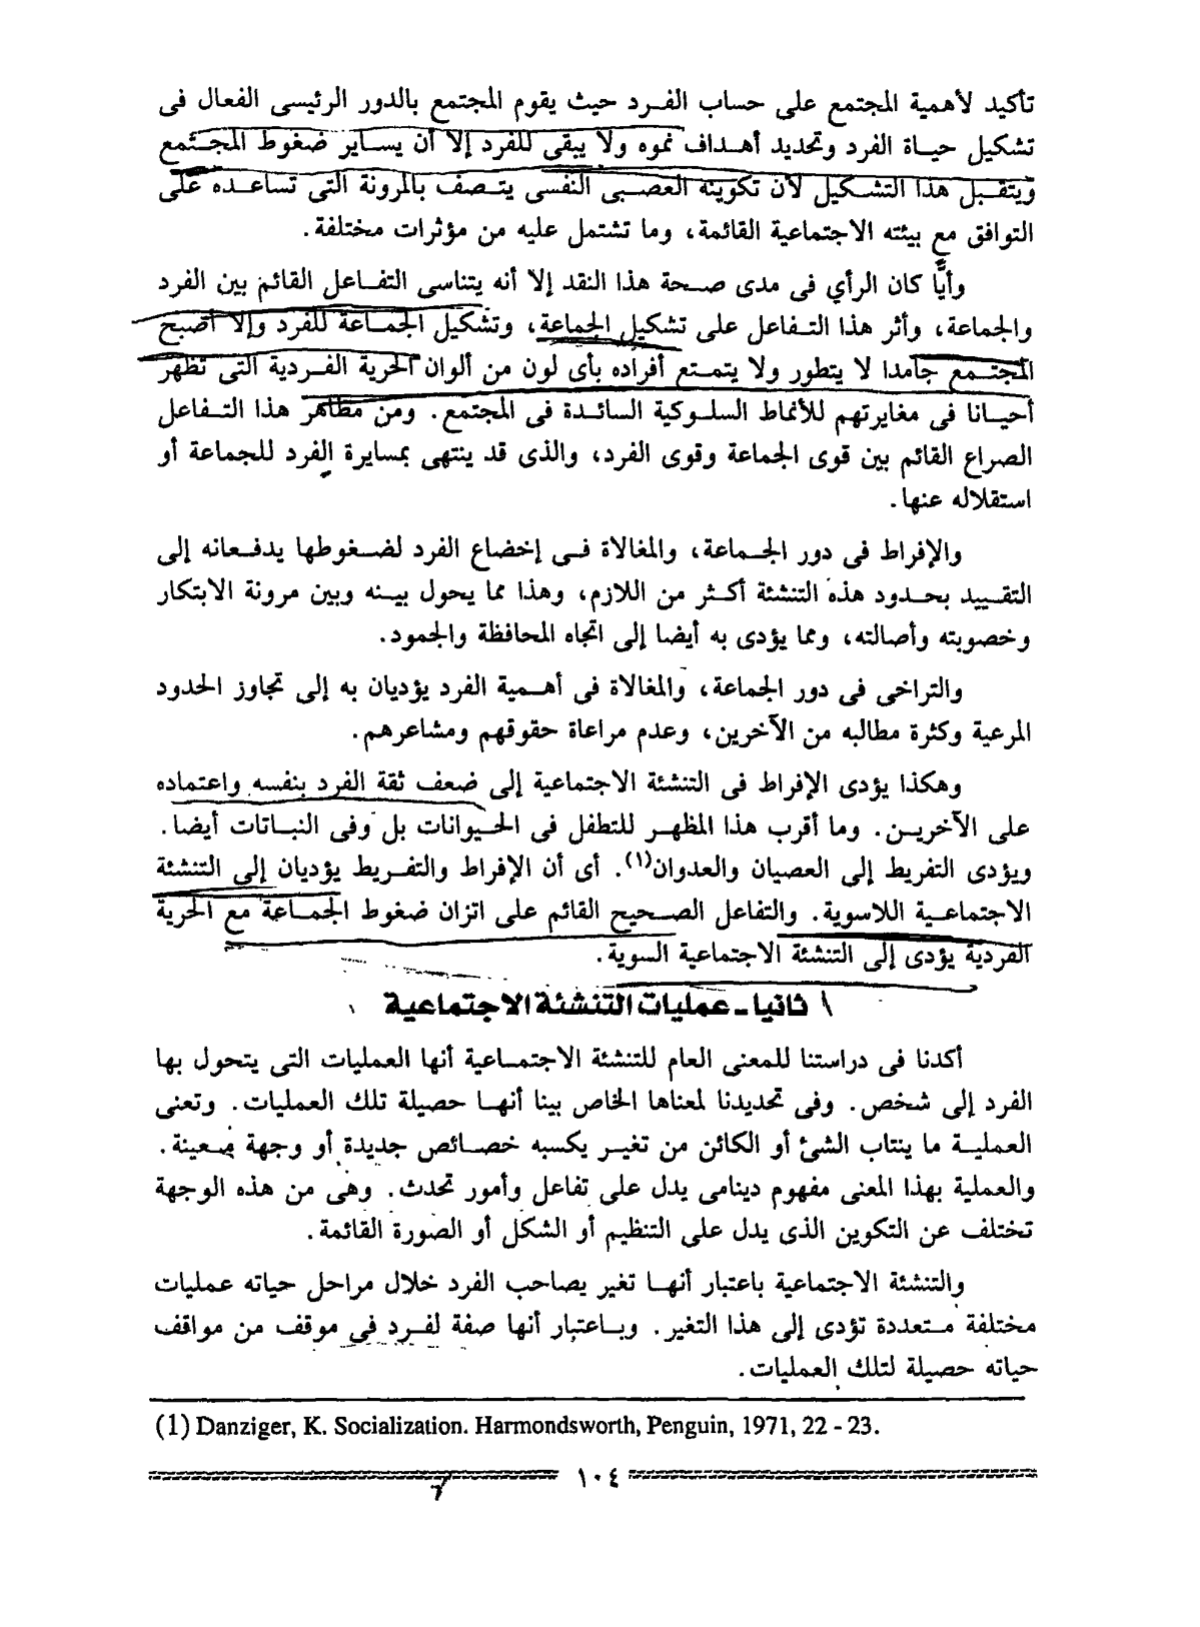 تأكيد لأهمية المجتمع على حساب الفرد حيث يقوم المجتمع بالدور الرئيسى الفعال فى
تشكيل حياة الفرد وتحديد أهداف نموه ولا يبقى للفرد إلا أن يساير ضغوط المجتمع
ويتقبل هذا التشكيل لأن تكوينه العصبى النفسى يتصف بالمرونة التى تساعده على
التوافق مع بيئته الاجتماعية القائمة، وما تشتمل عليه من مؤثرات مختلفة.
وأيًّا كان الرأي فى مدى صحة هذا النقد إلا أنه يتناسى التفاعل القائم بين الفرد
والجماعة، وأثر هذا التفاعل على تشكيل الجماعة، وتشكيل الجماعة للفرد وإلا أصبح
المجتمع جامدا لا يتطور ولا يتمتع أفراده بأى لون من ألوان الحرية الفردية التى تظهر
أحيانا فى مغايرتهم للأنماط السلوكية السائدة فى المجتمع. ومن مظاهر هذا التفاعل
الصراع القائم بين قوى الجماعة وقوى الفرد، والذى قد ينتهى بمسايرة الفرد للجماعة أو
استقلاله عنها.
والإفراط فى دور الجماعة، والمغالاة فى إخضاع الفرد لضغوطها يدفعانه إلى
التقييد بحدود هذه التنشئة أكثر من اللازم، وهذا مما يحول بينه وبين مرونة الابتكار
وخصوبته وأصالته، ومما يؤدى به أيضا إلى اتجاه المحافظة والجمود.
والتراخى فى دور الجماعة، والمغالاة فى أهمية الفرد يؤديان به إلى تجاوز الحدود
المرعية وكثرة مطالبه من الآخرين، وعدم مراعاة حقوقهم ومشاعرهم.
وهكذا يؤدى الإفراط فى التنشئة الاجتماعية إلى ضعف ثقة الفرد بنفسه واعتماده
على الآخرين. وما أقرب هذا المظهر للتطفل فى الحيوانات بل وفى النباتات أيضا.
ويؤدى التفريط إلى العصيان والعدوان(١). أى أن الإفراط والتفريط يؤديان إلى التنشئة
الاجتماعية اللاسوية. والتفاعل الصحيح القائم على اتزان ضغوط الجماعة مع الحرية
الفردية يؤدى إلى التنشئة الاجتماعية السوية.
ثانيا ـ عمليات التنشئة الاجتماعية
أكدنا فى دراستنا للمعنى العام للتنشئة الاجتماعية أنها العمليات التى يتحول بها
الفرد إلى شخص. وفى تحديدنا لمعناها الخاص بينا أنها حصيلة تلك العمليات. وتعنى
العملية ما ينتاب الشئ أو الكائن من تغير يكسبه خصائص جديدة أو وجهة معينة.
والعملية بهذا المعنى مفهوم دينامى يدل على تفاعل وأمور تحدث. وهى من هذه الوجهة
تختلف عن التكوين الذى يدل على التنظيم أو الشكل أو الصورة القائمة.
والتنشئة الاجتماعية باعتبار أنها تغير يصاحب الفرد خلال مراحل حياته عمليات
مختلفة متعددة تؤدى إلى هذا التغير. وباعتبار أنها صفة لفرد فى موقف من مواقف
حياته حصيلة لتلك العمليات.
(1) Danziger, K. Socialization. Harmondsworth, Penguin, 1971, 22 - 23.
١٠٤